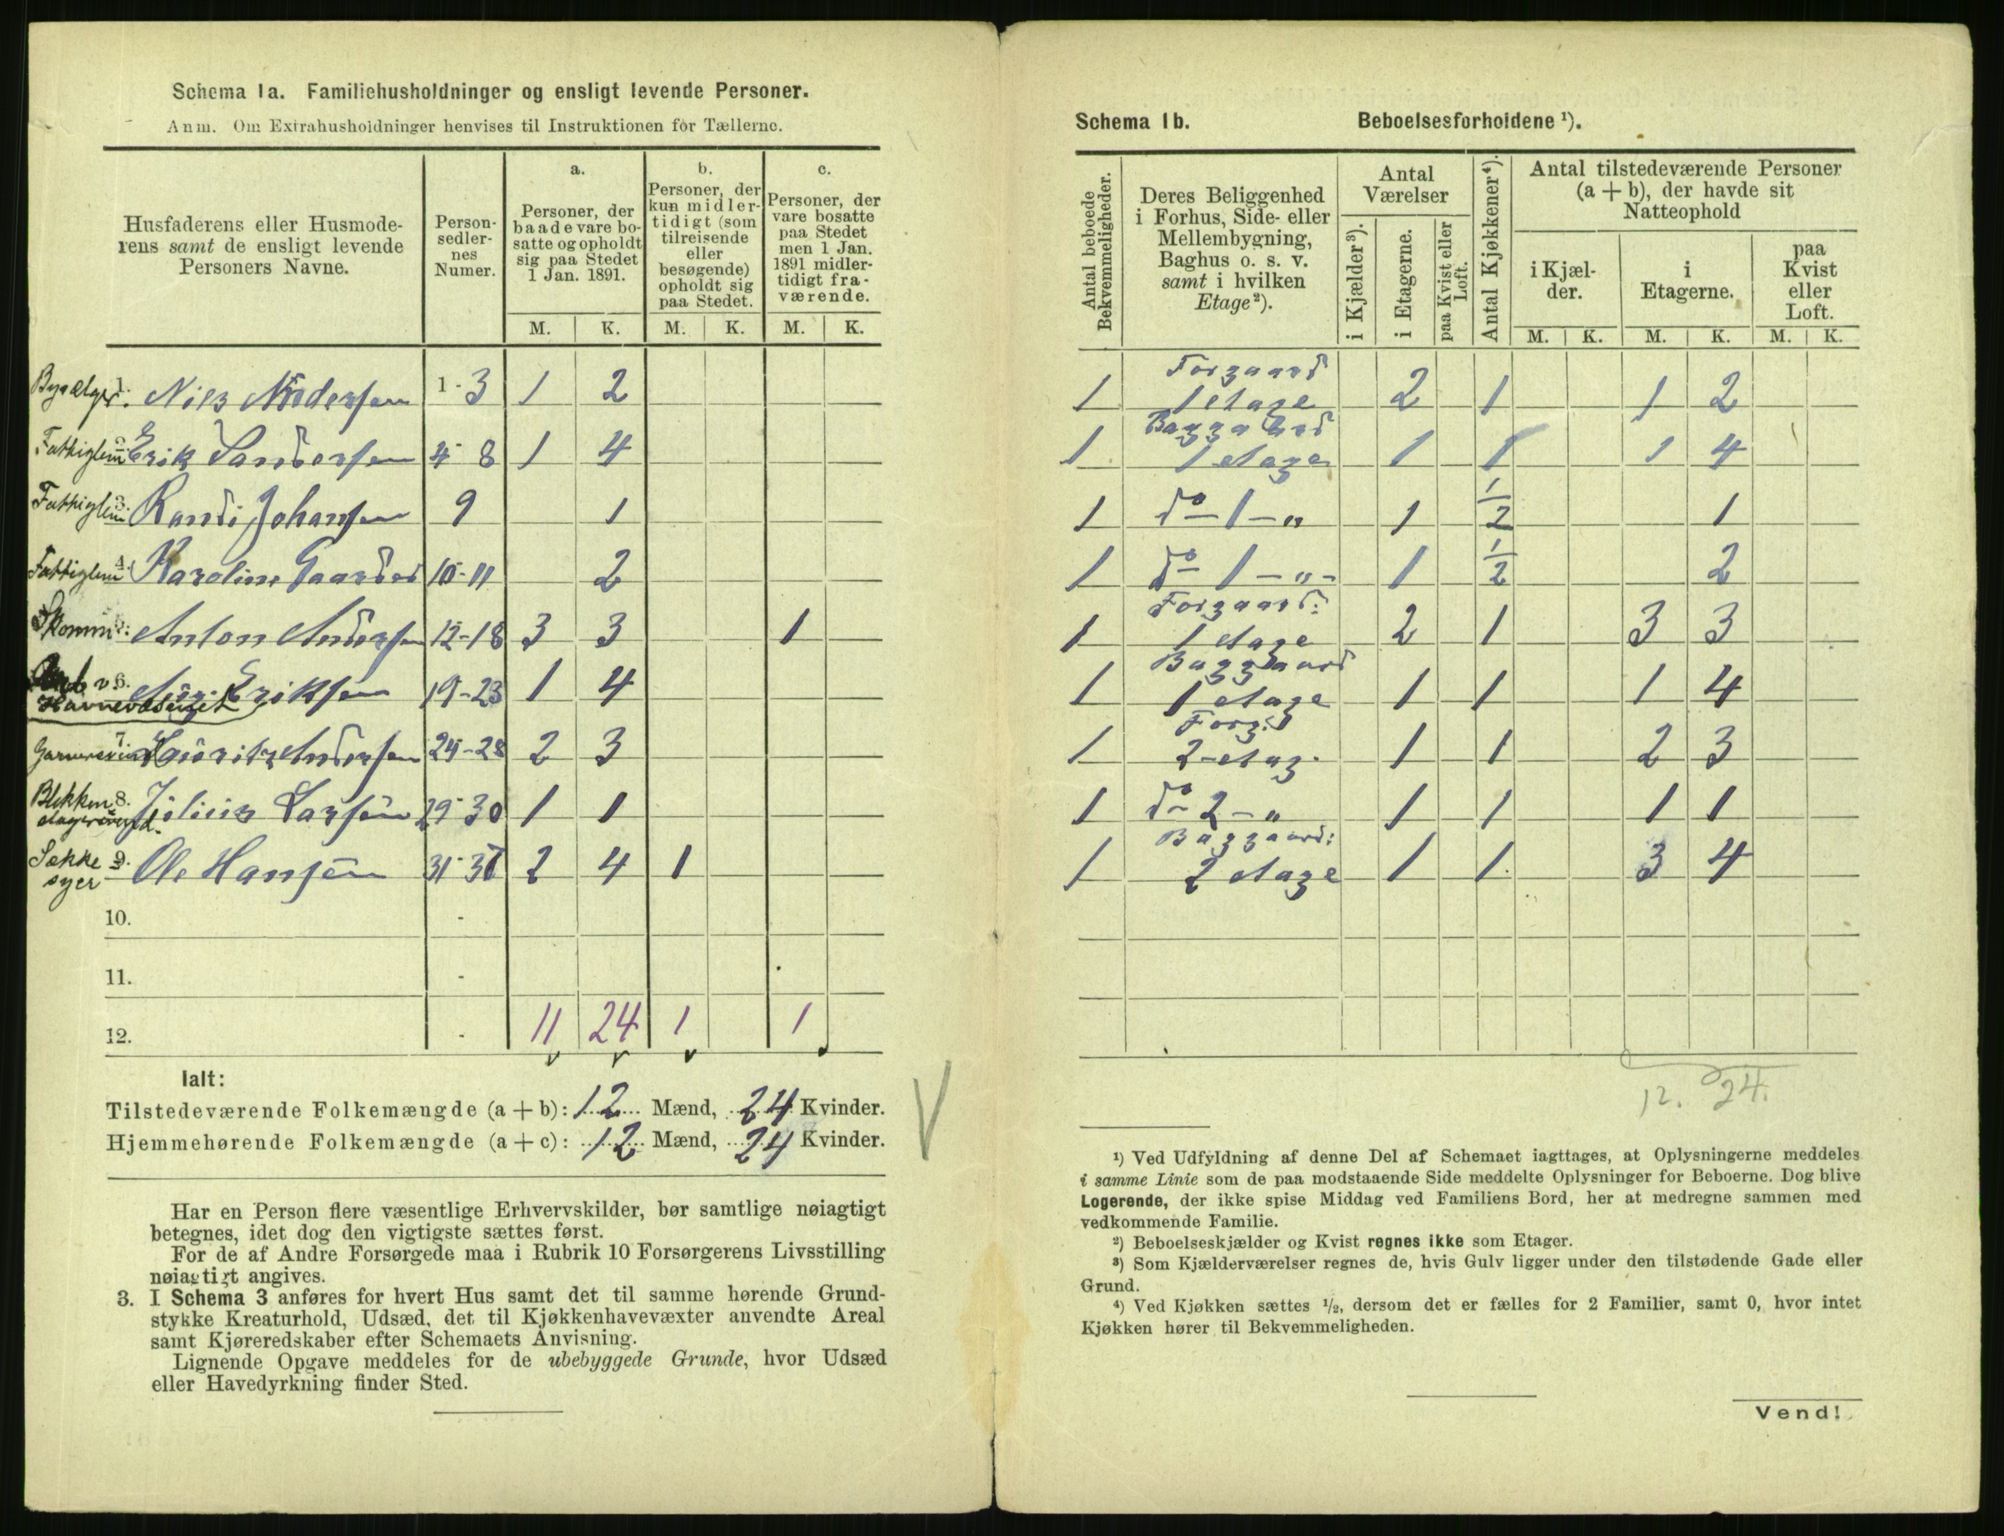 Schema 1a. Familiehusholdninger og ensligt levende Personer.
Anm. Om Extrahusholdninger henvises til Instruktionen for Tællerne.
Husfaderens eller Husmode-
rens samt de ensligt levende
Personers Navne.
Person-
sedler-
nes
Numer.
a.
Personer, der
baade vare bo-
satte og opholdt
sig paa Stedet
1 Jan. 1891.
b.
Personer, der
kun midler-
tidigt (som
tilreisende
eller
besøgende)
opholdt sig
paa Stedet.
c.
Personer, der
vare bosatte
paa Stedet
men 1 Jan.
1891 midler-
tidigt fra-
værende.
M. K. M. K. M. K.
1. Nils Andersen 1-3 1 2
Fattiglem 2. Erik Sandersen 4-8 1 4
Fattiglem 3. Randi Johansen 9 1
Fattiglem 4. Karoline 10-11 2
Skomm: 5. Anton Andersen 12-18 3 3 1
Arb v. 6. Eriksen 19-23 1 4
Havnevæsenet
7. Lauritz Andersen 24-28 2 3
Blikken- 8. Julius Larsen 29-30 1 1
Sække- 9. Ole Hansen 31-37 2 4 1
syer
10. -
11. -
12. - 11 24 1 1
Ialt:
Tilstedeværende Folkemængde (a + b): 12 Mænd, 24 Kvinder.
Hjemmehørende Folkemængde (a + c): 12 Mænd, 24 Kvinder.
Har en Person flere væsentlige Erhvervskilder, bør samtlige nøiagtigt
betegnes, idet dog den vigtigste sættes først.
For de af Andre Forsørgede maa i Rubrik 10 Forsørgerens Livsstilling
nøiagtigt angives.
3. I Schema 3 anføres for hvert Hus samt det til samme hørende Grund-
stykke Kreaturhold, Udsæd, det til Kjøkkenhavevæxter anvendte Areal
samt Kjøreredskaber efter Schemaets Anvisning.
Lignende Opgave meddeles for de ubebyggede Grunde, hvor Udsæd
eller Havedyrkning finder Sted.
Schema 1b. Beboelsesforholdene ¹).
Antal beboede
Bekvemmeligheder.
Deres Beliggenhed
i Forhus, Side- eller
Mellembygning,
Baghus o. s. v.
samt i hvilken
Etage²).
Antal
Værelser
i Kjælder³).
i Etagerne.
paa Kvist eller
Loft.
Antal Kjøkkener⁴).
Antal tilstedeværende Personer
(a + b), der havde sit
Natteophold
i Kjæl-
der.
i
Etagerne.
paa
Kvist
eller
Loft.
M. K. M. K. M. K.
Forgaard
1 1 etage 2 1 1 2
Baggaard
1 1 etage 1 1 1 4
1 do 1 - " 1 1/2 1
1 do 1 - " - 1 1/2 2
Forgaard:
1 1 etage 2 1 3 3
Baggaard
1 1 etage 1 1 1 4
Forg:
1 2-etag. 1 1 2 3
1 do 2 - " 1 1 1 1
Baggaard:
1 2 etage 1 1 3 4
12. 24.
¹) Ved Udfyldning af denne Del af Schemaet iagttages, at Oplysningerne meddeles
i samme Linie som de paa modstaaende Side meddelte Oplysninger for Beboerne. Dog blive
Logerende, der ikke spise Middag ved Familiens Bord, her at medregne sammen med
vedkommende Familie.
²) Beboelseskjælder og Kvist regnes ikke som Etager.
³) Som Kjælderværelser regnes de, hvis Gulv ligger under den tilstødende Gade eller
Grund.
⁴) Ved Kjøkken sættes ½, dersom det er fælles for 2 Familier, samt 0, hvor intet
Kjøkken hører til Bekvemmeligheden.
Vend!